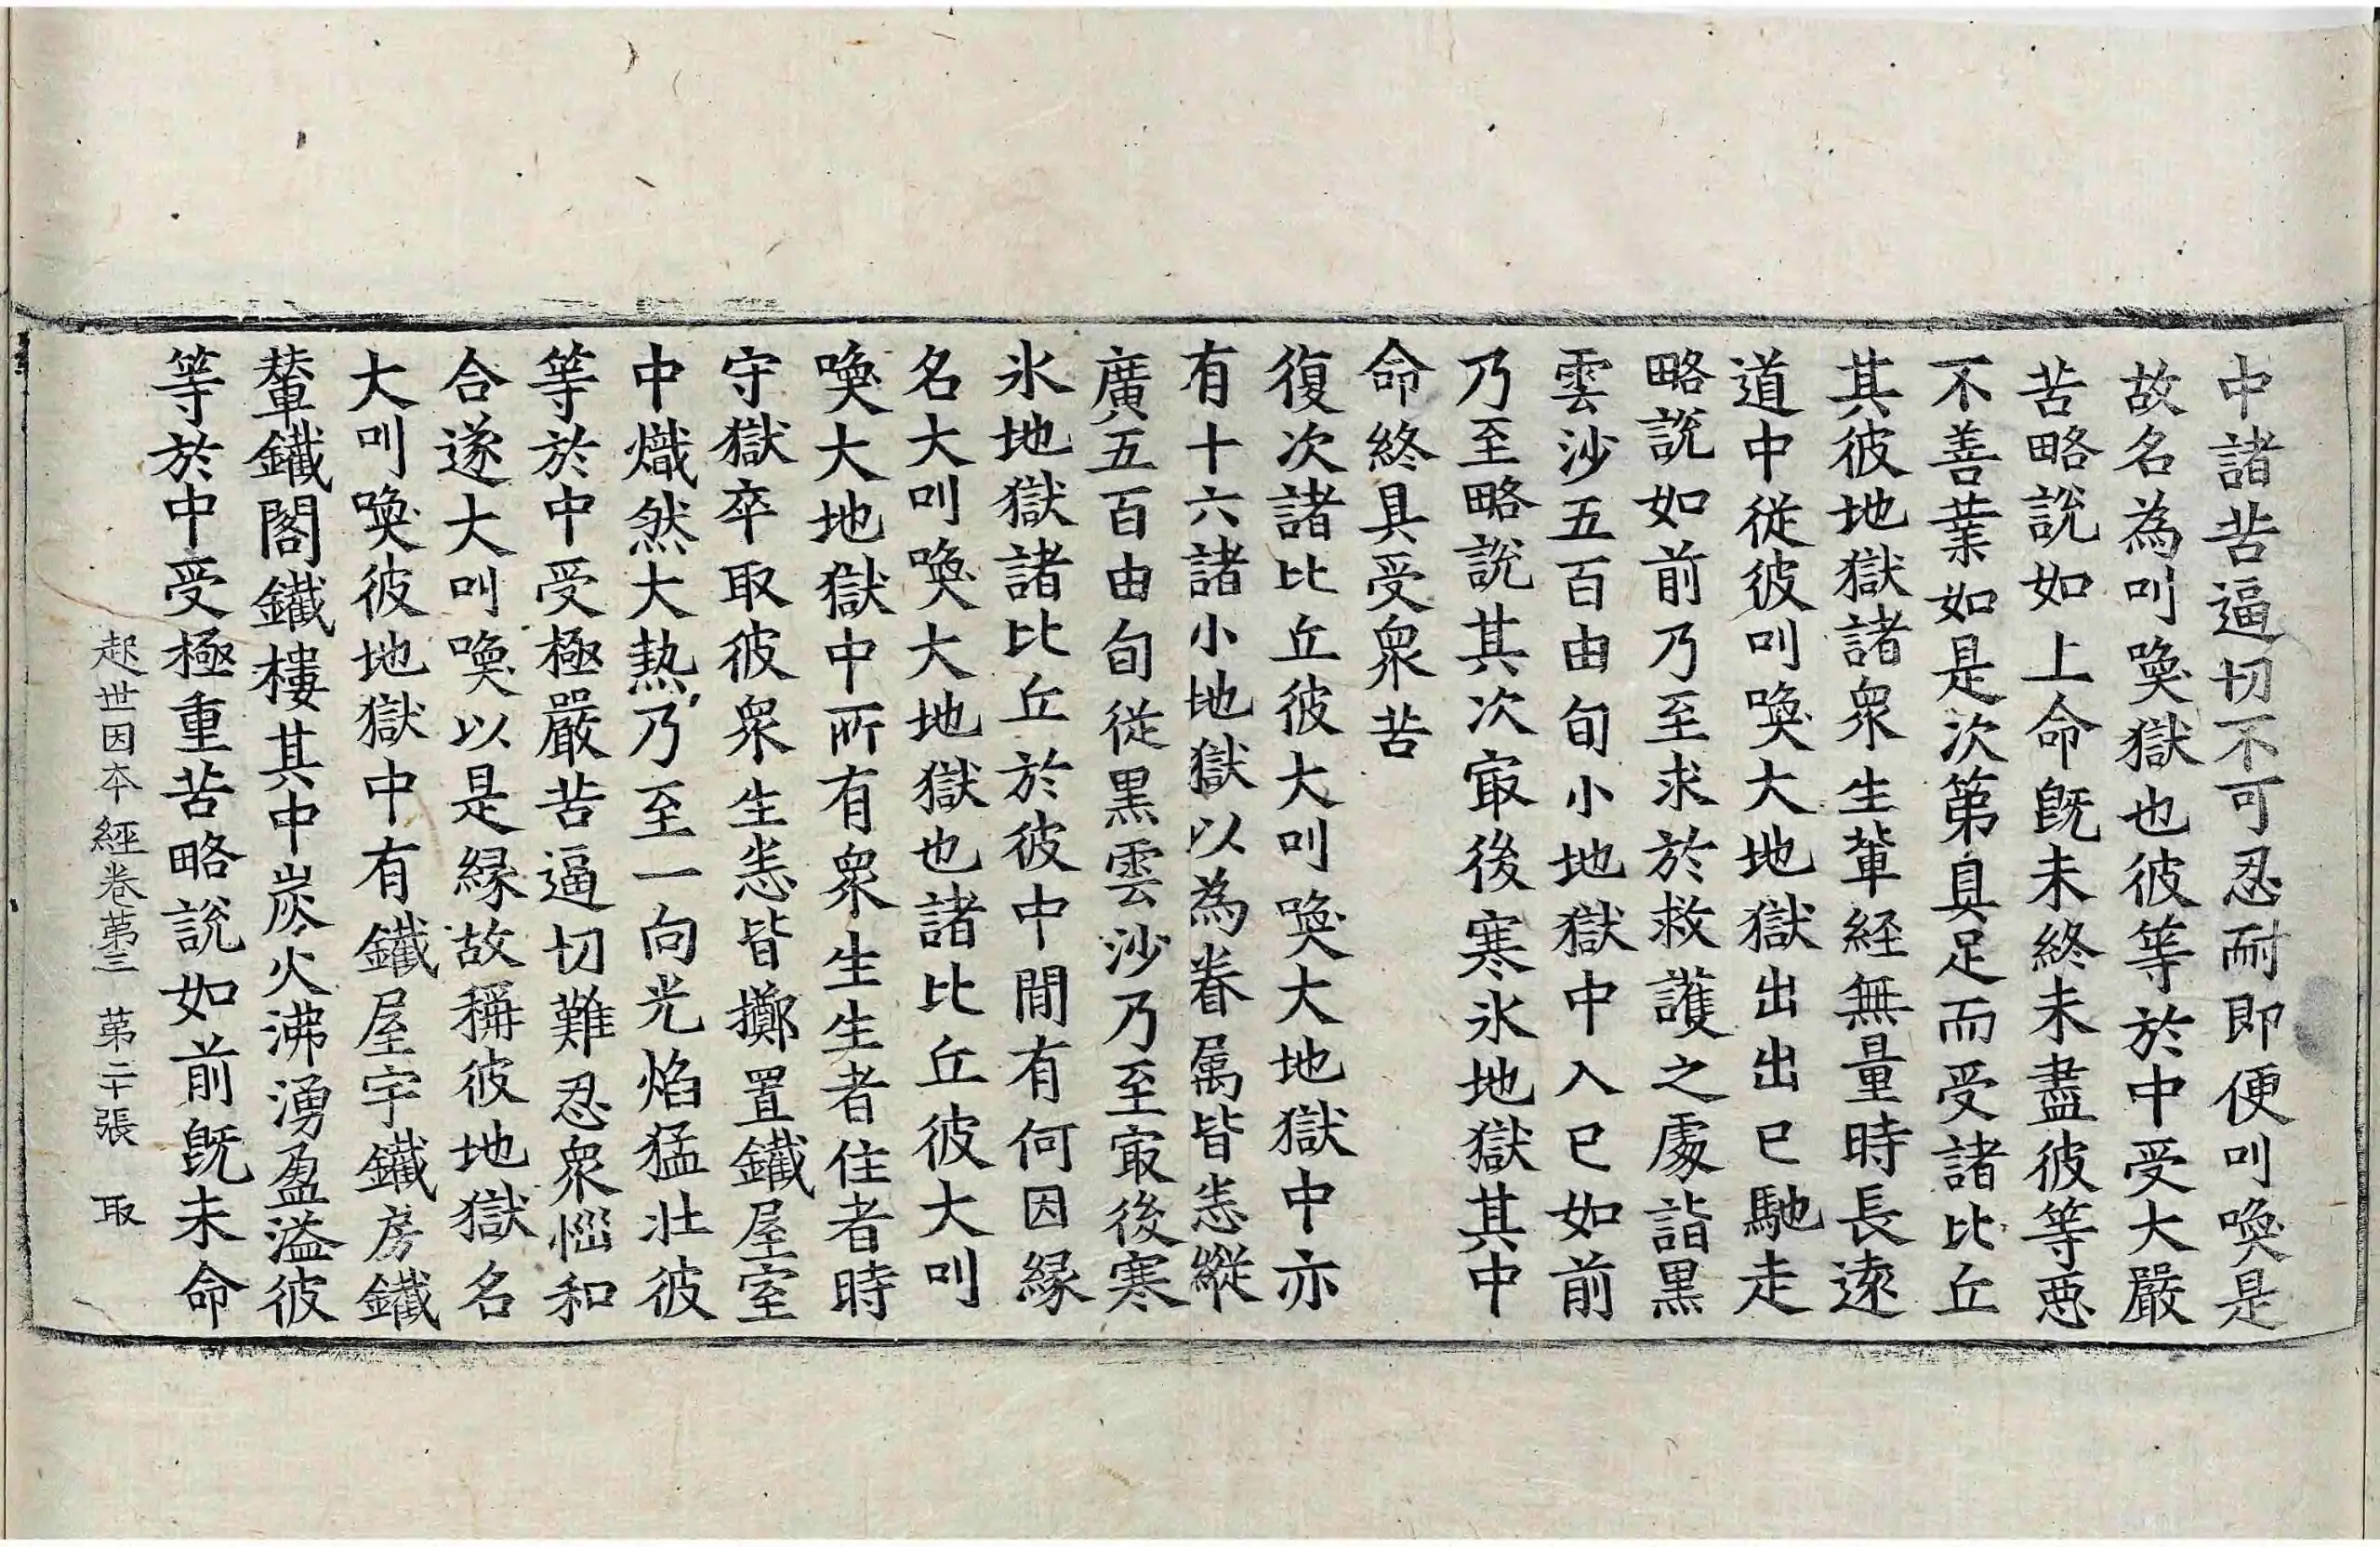 中諸苦逼切不可忍耐即便叫喚是
故名為叫喚獄也彼等於中受大嚴
苦略說如上命旣未終未盡彼等惡
不善業如是次第具足而受諸比丘
其彼地獄諸衆生輩経無量時長遠
道中從彼叫喚大地獄出出已馳走
略說如前乃至求於救護之處詣黒
雲沙五百由旬小地獄中入已如前
乃至略說其次㝡後寒氷地獄其中
命終具受衆苦
復次諸比丘彼大叫喚大地獄中亦
有十六諸小地獄以為眷属皆悉縱
廣五百由旬從黒雲沙乃至㝡後寒
氷地獄諸比丘於彼中閒有何因緣
名大叫喚大地獄也諸比丘彼大叫
喚大地獄中所有衆生生者住者時
守獄卒取彼衆生悉皆擲置鐵屋室
中熾然大熱乃至一向光焰猛壯彼
等於中受極嚴苦逼切難忍衆惱和
合遂大叫喚以是緣故稱彼地獄名
大叫喚彼地獄中有鐵屋宇鐵房鐵
輦鐵閣鐵樓其中炭火沸湧盈溢彼
等於中受極重苦略說如前旣未命
起世因本經卷苐三 苐二十張 取